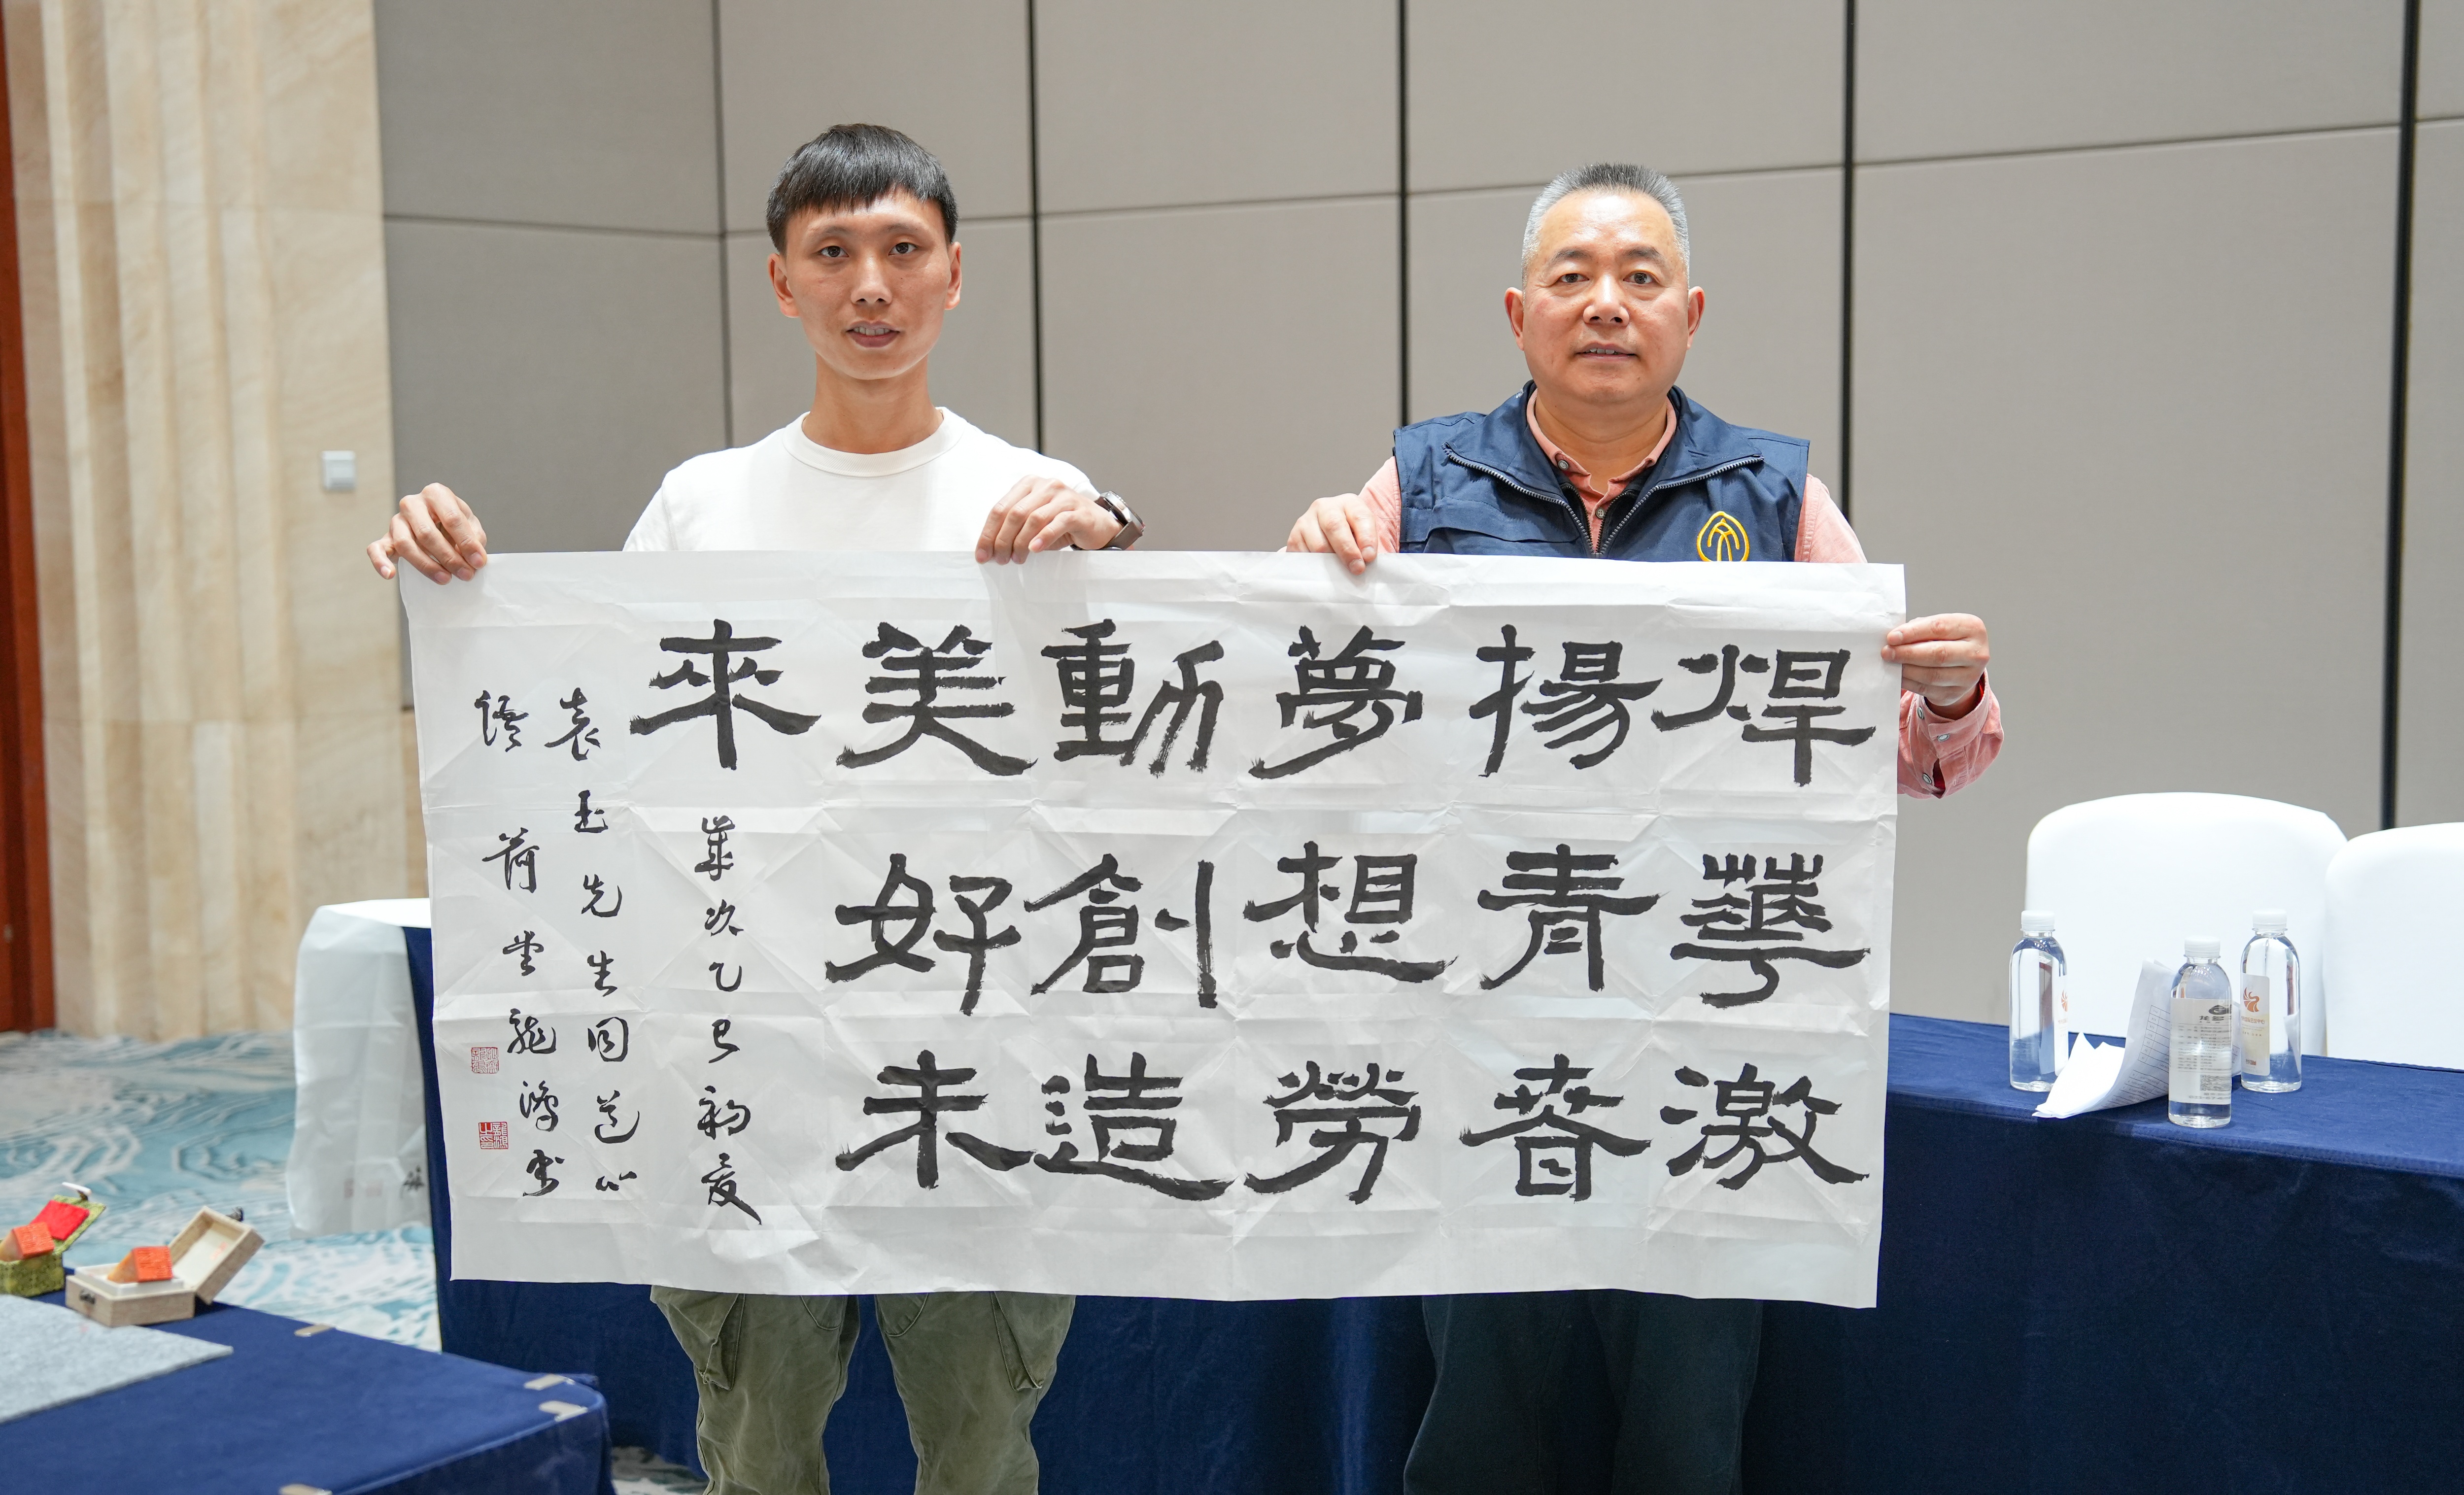 焊華激
揚青春
夢想勞
動創造
美好未
來
歲次乙巳初夏
袁玉先生同道
荷堂龍鴻書